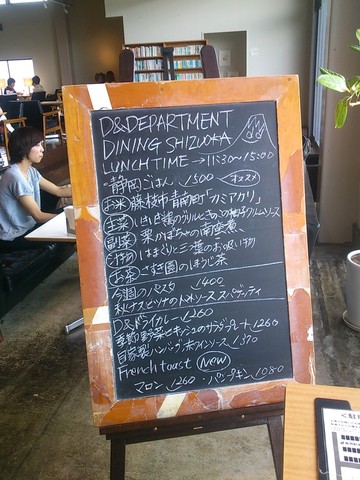 D&DEPARTMENT
DINING SHIZUOKA
LUNCH TIME → 11:30~15:00
・静岡ごはん 1500 オススメ
お米 藤枝市青南町「カミアカリ」
主菜
副菜 栗かぼちゃの南蛮煮
汁物 はまぐりと三葉のお吸い物
お茶 こすぎ園のほうじ茶
今週のパスタ 1400
秋ナスとツナのトマトソーススパゲッティ
D&ドライカレー 1260
季節野菜とキッシュのサラダプレート 1260
自家製ハンバーグ、ホワイトソース 1370
French toast New
マロン 1260 ・パンプキン 1080